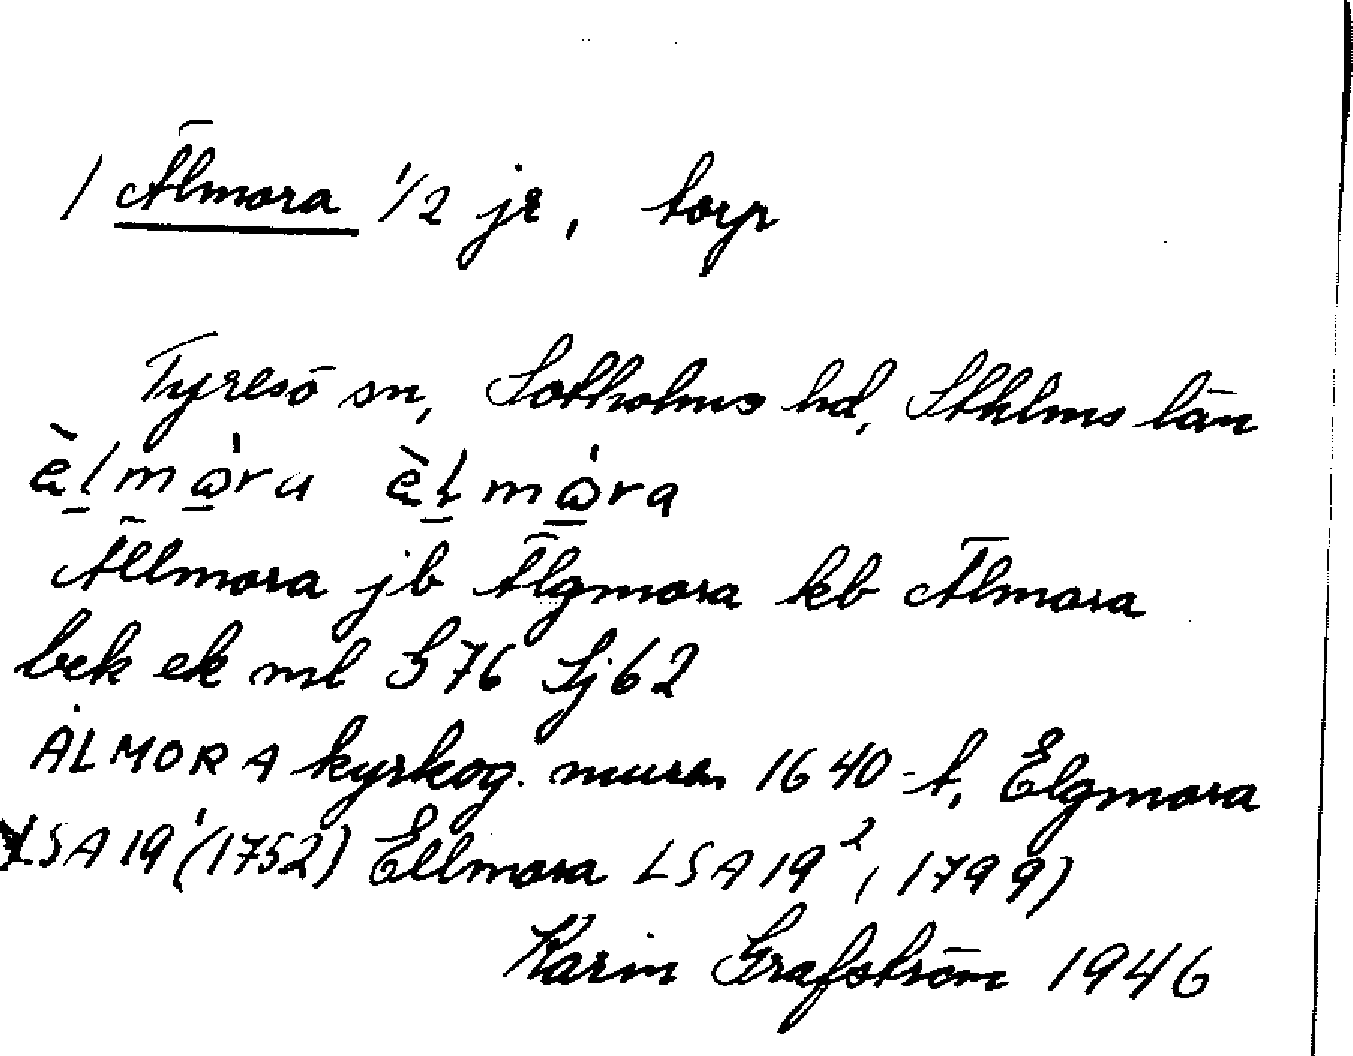 / Älmora 1/2 jr, torp
Tyresö sn, Sotholms hd, Sthlms län
è̀lmὼra è̀lmὼra
Ällmora jb Älgmora kb Älmora
bek ek ml S76 Sj62
ÄLMORA kyrkog. muren 1640-t, Elgmora
LSA 19¹ (1752) Ellmora LSA 19², 1799)
Karin Grafström 1946